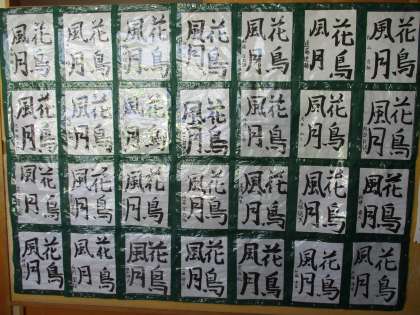 花鳥
風月
花鳥
風月
花鳥
風月
花鳥
風月
花鳥
風月
花鳥
風月
花鳥
風月
花鳥
風月
花鳥
風月
花鳥
風月
花鳥
風月
花鳥
風月
花鳥
風月
花鳥
風月
花鳥
風月
花鳥
風月
花鳥
風月
花鳥
風月
花鳥
風月
花鳥
風月
花鳥
風月
花鳥
風月
花鳥
風月
花鳥
風月
花鳥
風月
花鳥
風月
花鳥
風月
花鳥
風月